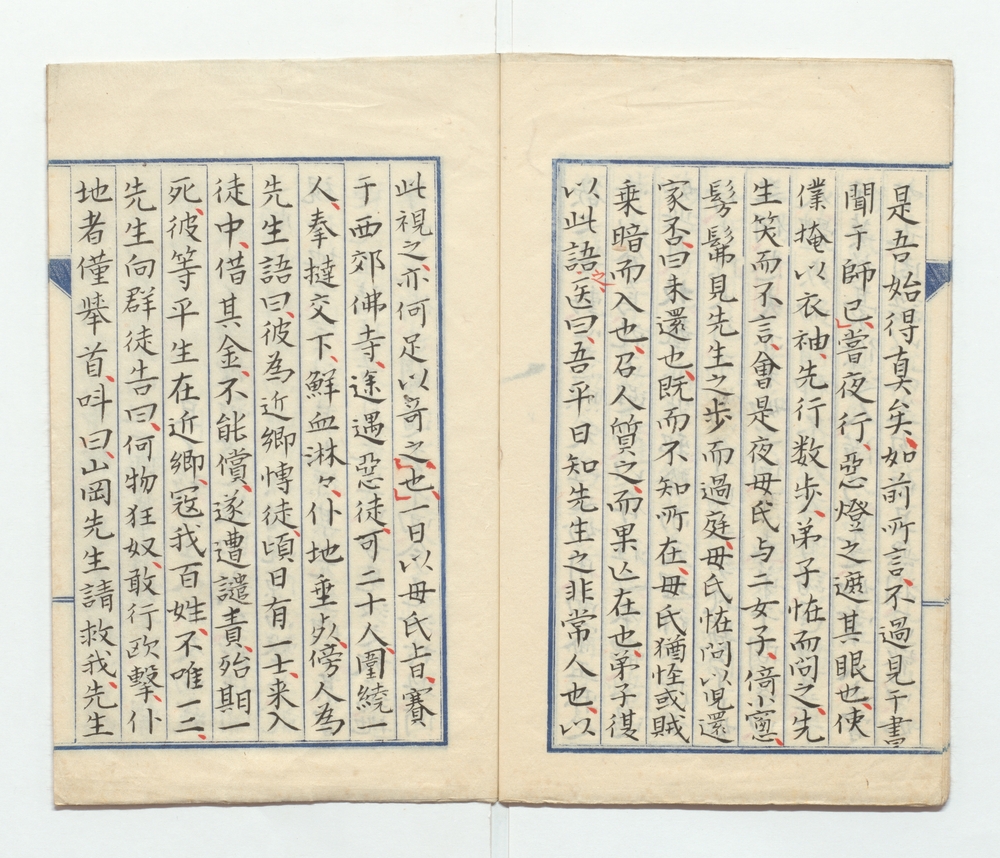 是吾始得真矣、如前所言、不過見于書
聞于師已、」嘗夜行、惡燈之遮其眼也、使
僕掩以衣袖、先行数歩、弟子恠而問之、先
生笑而不言、會是夜毋氏与二女子、倚小窻、
髣髴見先生之歩而過庭、毋氏恠問以児還
家否、曰未還也、既而不知所在、毋氏猶怪或賊
乗暗而入也、召人質之、而果亾在也、弟子復
以此語之、医曰、吾平日知先生之非常人也、以
此視之、亦何足以奇之、也、」一日以毋氏旨、賽
于西郊佛寺、途遇惡徒、可二十人、圍繞一
人、拳撻交下、鮮血淋々、仆地垂死、傍人為
先生語曰、彼為近郷慱徒、頃日有一士、来入
徒中、借其金、不能償、遂遭譴責、殆期一
死、彼等平生在近郷、冦我百姓、不唯一二、
先生向群徒告曰、何物狂奴、敢行欧撃、仆
地者僅擧首、呌曰、山岡先生請救我、先生